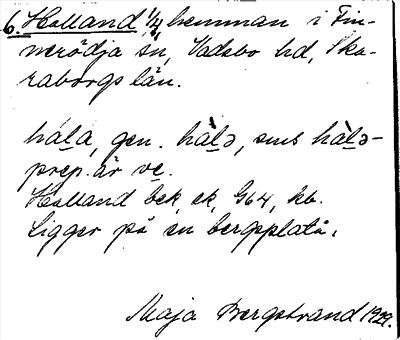 6. Holland 1/4 hemman i Fin-
nerödja sn, Vadsbo hd, Ska-
raborgs län.
håla, gen. hàlə, sms hàlə-
prep. är ve.
Holland bek, ek, G64, kb.
Ligger på en bergsplatå.
Maja Bergstrand 1929.